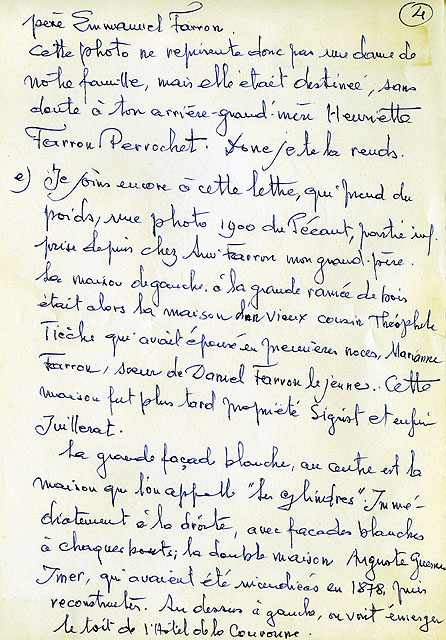 4
père Emmanuel Farron.
Cette photo ne représente donc pas une dame de
notre famille, mais elle était destinée, sans
doute à ton arrière-grand'mère Henriette
Farron Perrochet. Donc je te la rends.
e) Je joins encore à cette lettre, qui prend du
poids, une photo 1900 du Pécaut, partie inf.
prise depuis chez Ami Farron mon grand-père.
La maison de gauche à la grande ramée de bois
était alors la maison d'un vieux cousin Théophile
Tièche qui avait épousé en premières noces, Marianne
Farron, sœur de Daniel Farron le jeune. Cette
maison fut plus tard propriété Sigrist et enfin
Juillerat.
La grande façad blanche, au centre est la
maison que l'on appelle "Les cylindres". Immé-
diatement à la droite, avec façades blanches
à chaques bouts; la double maison Auguste
Imer, qui avaient été incendiées en 1878, puis
reconstruites. Au dessus à gauche, on voit émerger
le toit de l'Hôtel de la Couronne.